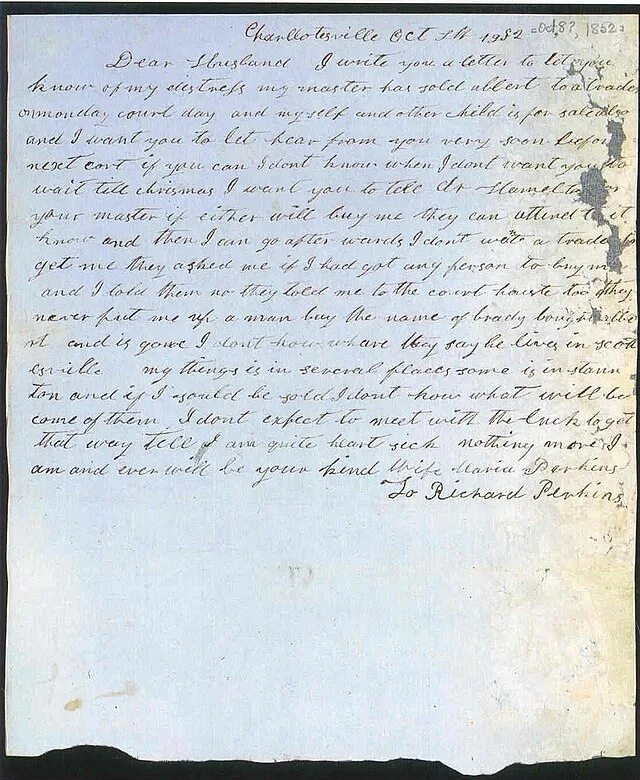 Charllotesville Oct 8th 1852 Oct 8? 1852
Dear Husband I write you a letter to let you
know of my distress my master has sold albert to a trader
on monday court day and myself and other child is for sale also
and I want you to let hear from you very soon before
next cort if you can I dont know when I dont want you to
wait till chrismas I want you to tell dr Hamelton or
your master if either will buy me they can attend to it
know and then I can go after wards I dont want a trader to
get me they asked me if I had got any person to buy me
and I told them no they told me to the court houste too they
never put me up a man buy the name of brady bought albe
rt and is gone I dont know whare they say he lives in scott
esville my things is in several places some is in staun
ton and if I sould be sold I dont know what will be
come of them I dont expect to meet with the luck to get
that way till I am quite heart sick nothing more I
am and ever will be your kind Wife Maria Perkins
To Richard Perkins